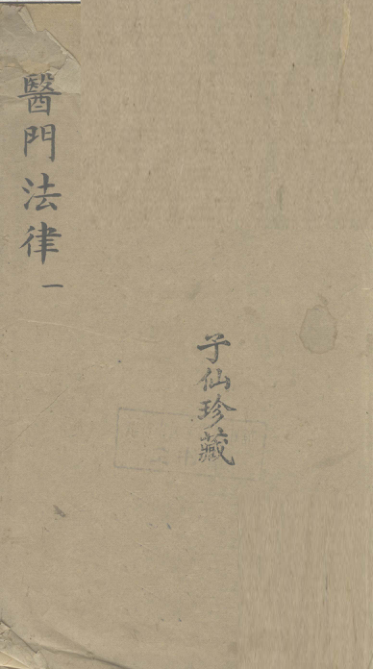 醫門法律 一
子仙珍藏